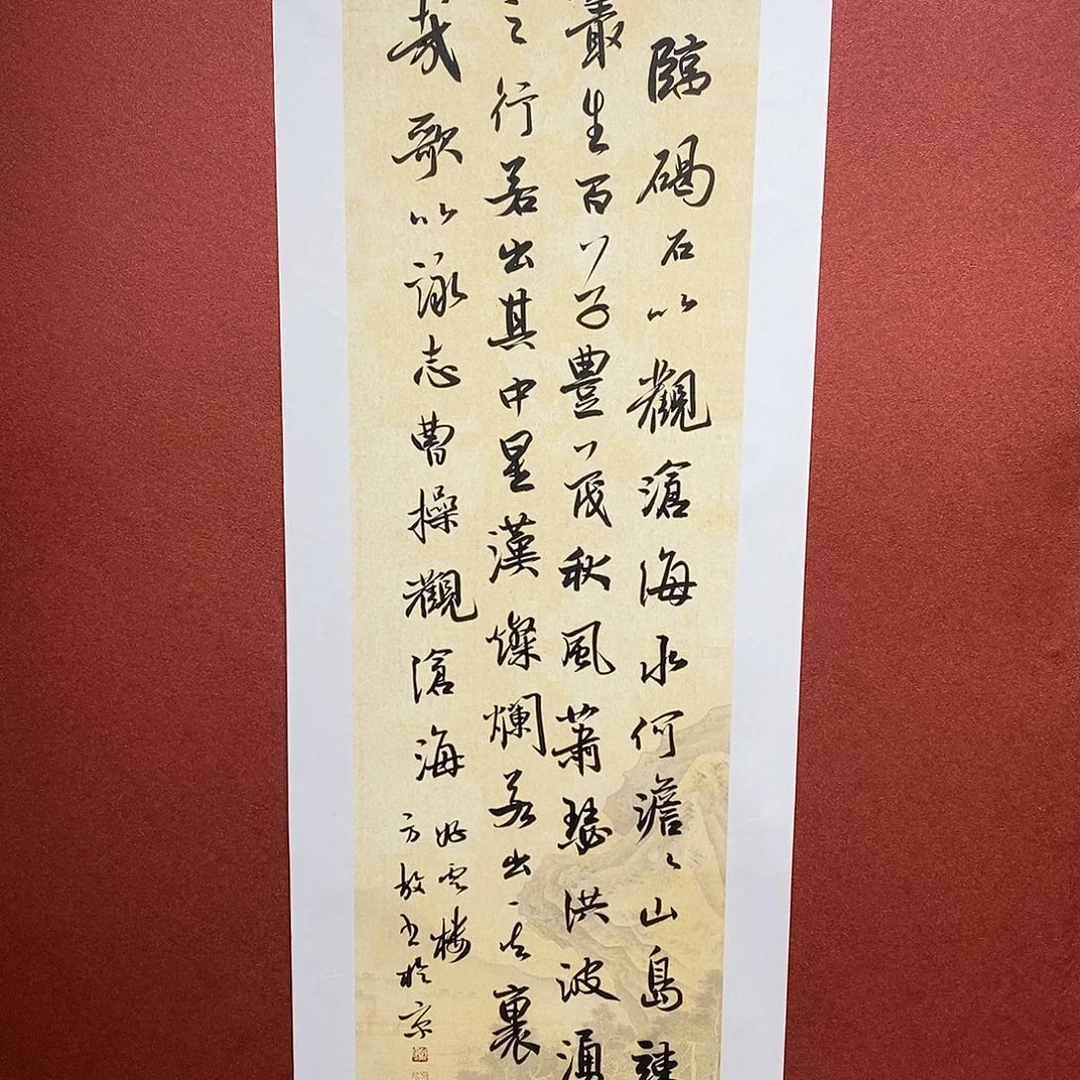 臨碣石以觀滄海水何澹々山島竦
叢生百草豐茂秋風蕭瑟洪波湧
之行若出其中星漢燦爛若出其裏
哉歌以詠志曹操觀滄海
好雲楼
方放书於京